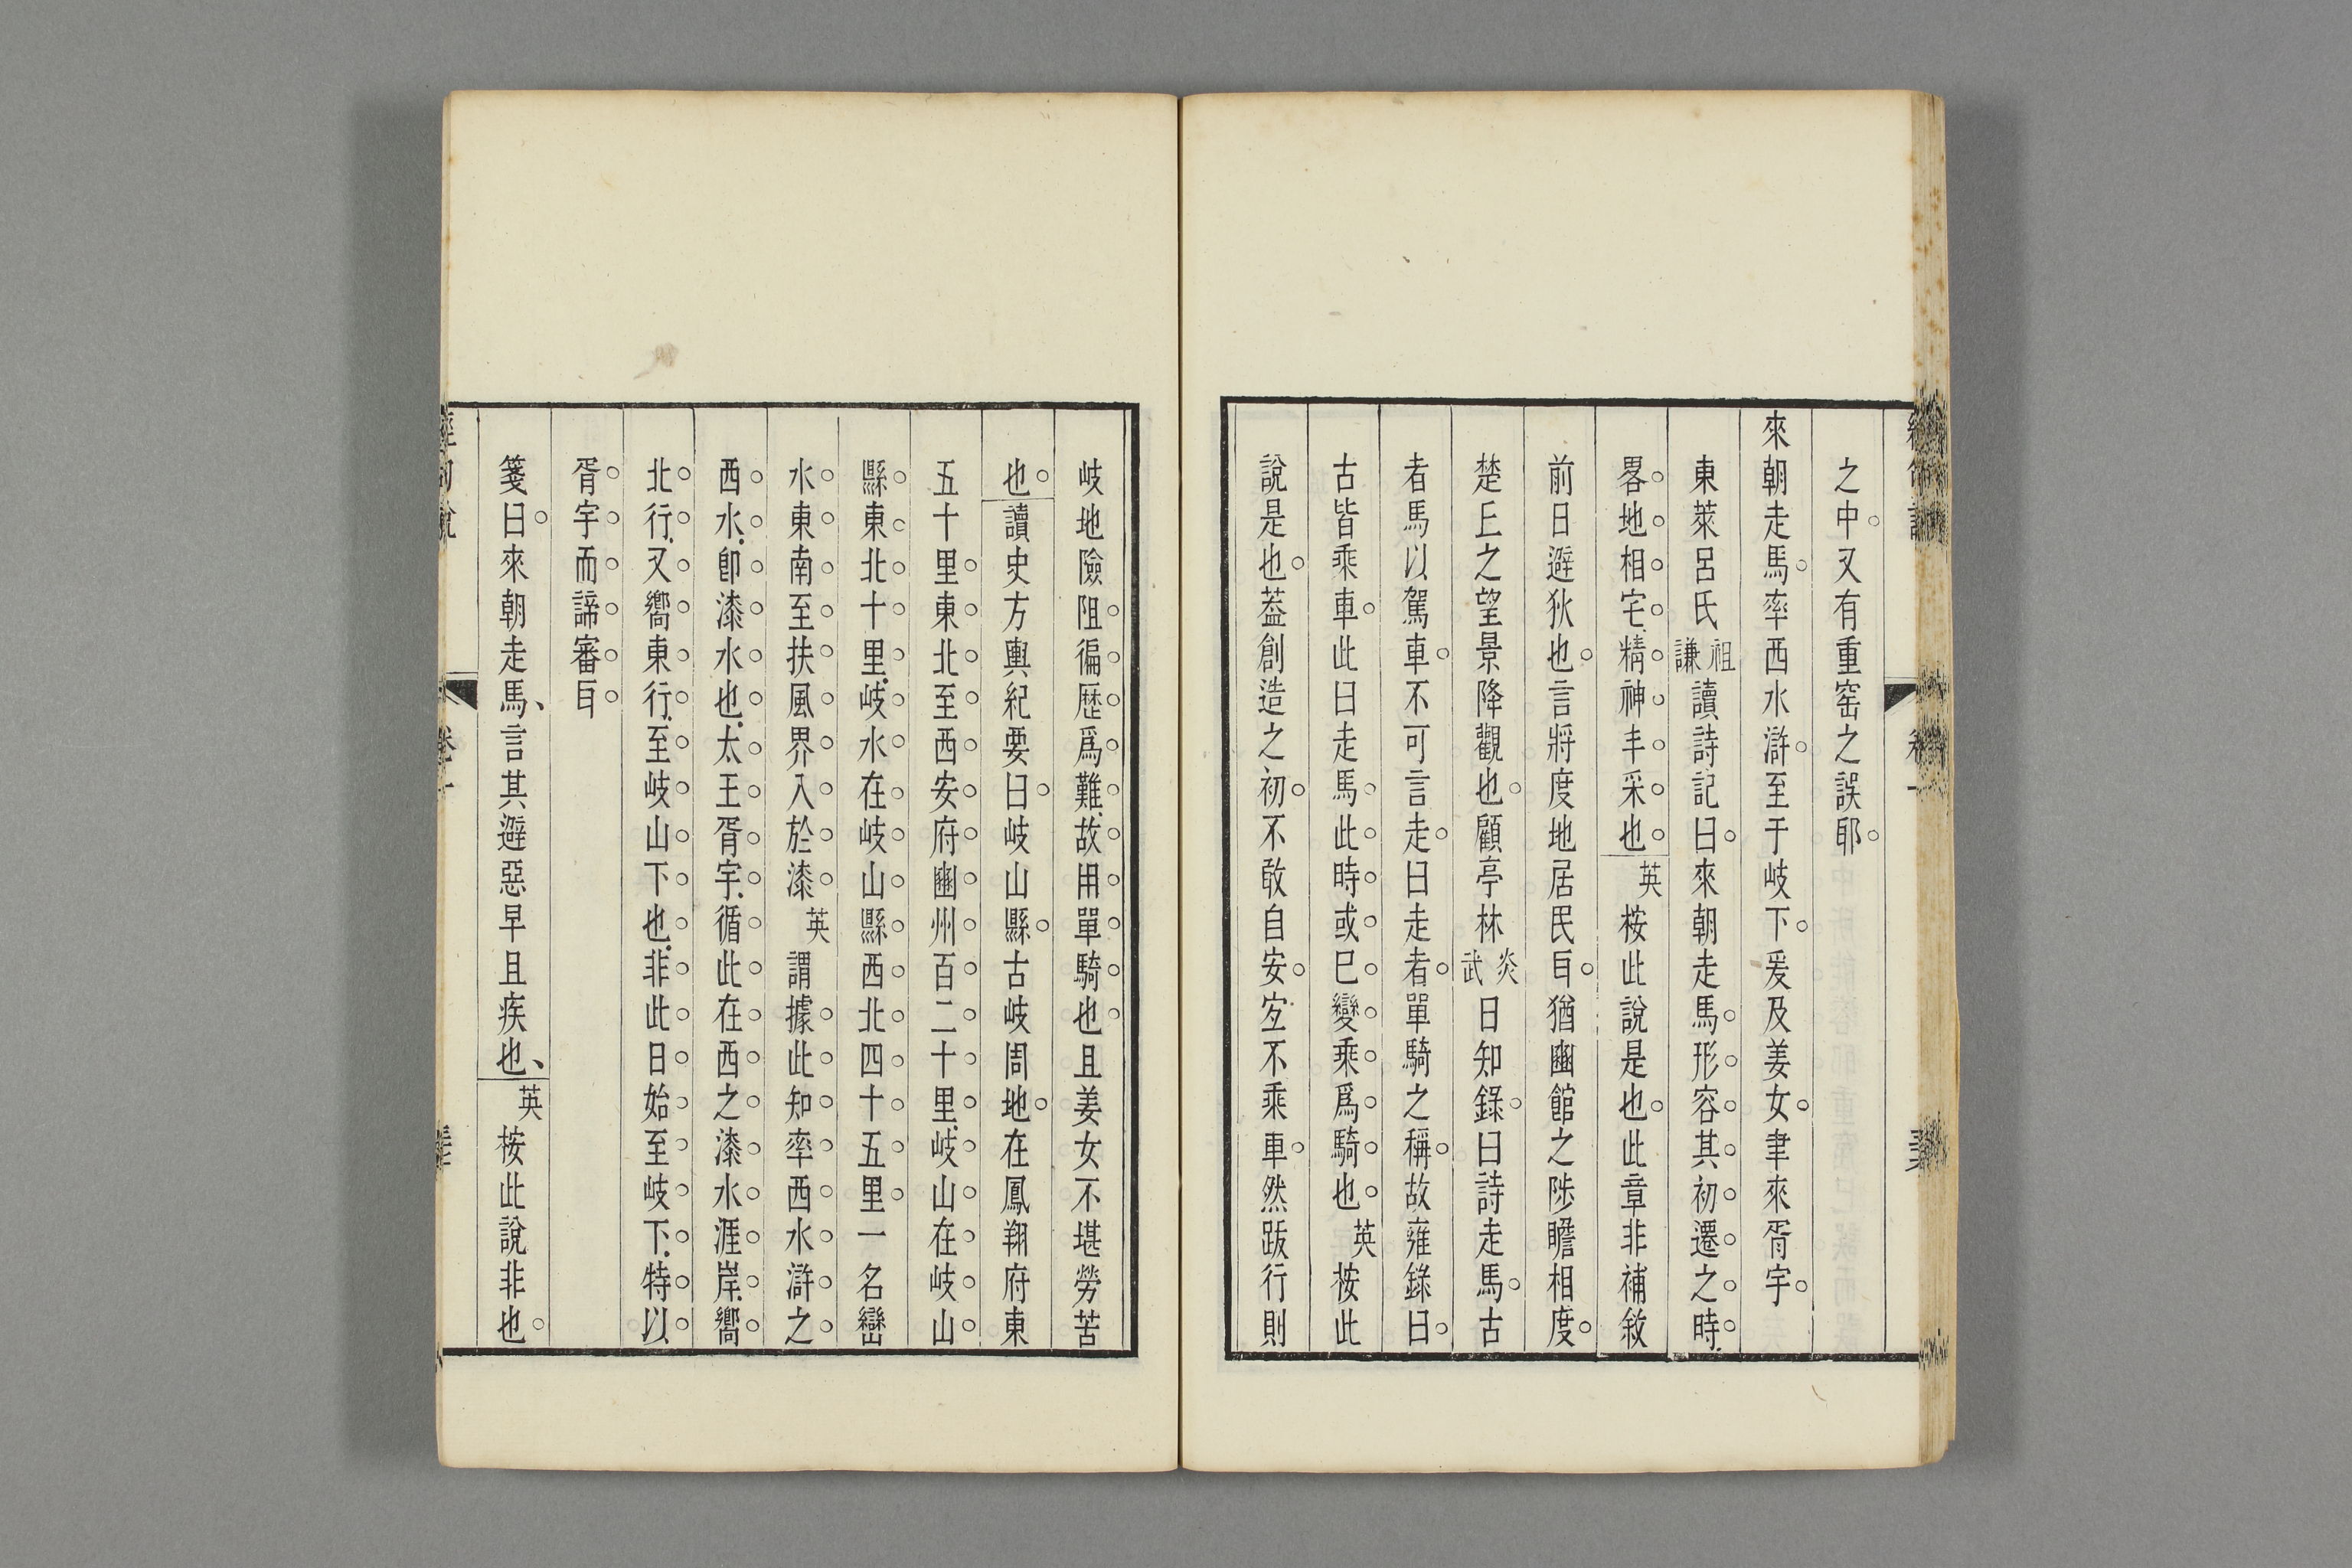 之中又有重窑之誤耶
來朝走馬率西水滸至于岐下爰及姜女聿來胥宇
東萊呂氏祖謙讀詩記曰來朝走馬形容其初遷之時
畧地相宅精神丰采也英桉此說是也此章非補敘
前日避狄也言將度地居民𦔮猶豳館之陟瞻相度
楚丘之望景降觀也顧亭林炎武日知錄曰詩走馬古
者馬以駕車不可言走曰走者單騎之稱故雍錄曰
古皆乘車此曰走馬此時或已變乘爲騎也英桉此
說是也葢創造之初不敢自安宐不乘車然跋行則
岐地險阻徧歷爲難故用單騎也且姜女不堪勞苦
也讀史方輿紀要曰岐山縣古岐周地在鳳翔府東
五十里東北至西安府豳州百二十里岐山在岐山
縣東北十里岐水在岐山縣西北四十五里一名巒
水東南至扶風界入於漆英謂據此知率西水滸之
西水卽漆水也太王胥宇循此在西之漆水涯岸嚮
北行又嚮東行至岐山下也非此日始至岐下特以
胥宇而諦審𦔮
箋曰來朝走馬言其避惡早且疾也英桉此說非也
卷一